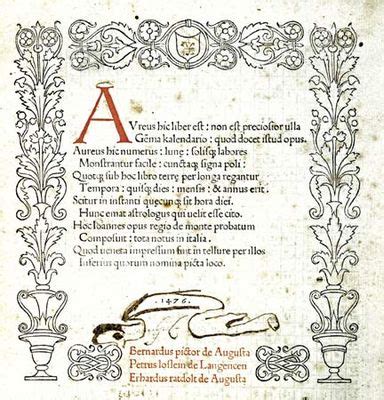 AUreus hic liber est: non est preciosior ulla
Gẽma kalendario: quod docet istud opus.
Aureus hic numerus: lune: solisq; labores
Monstrantur facile: cunctaq; signa poli:
Quotq; sub hoc libro terre per longa regantur
Tempora: quisq; dies: mensis: & annus erit.
Scitur in instanti quecunq; sit hora diei.
Hunc emat astrologus qui uelit esse cito.
Hoc Ioannes opus regio de monte probatum
Composuit: tota notus in italia.
Quod ueneta impressum fuit in tellure per illos
Inferius quorum nomina picta loco.
1476.
Bernardus pictor de Augusta
Petrus loslein de Langencen
Erhardus ratdolt de Augusta